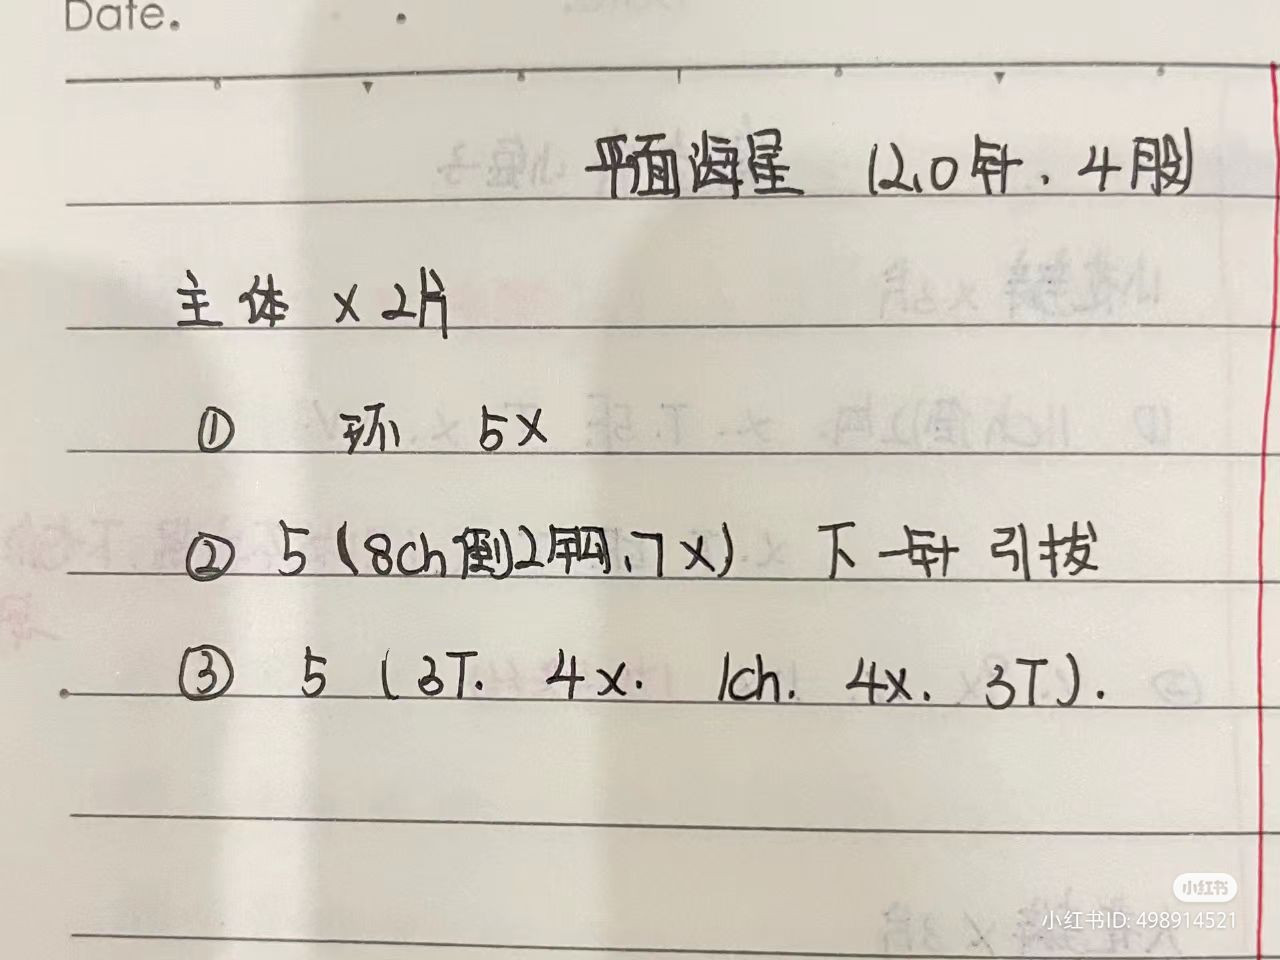 Date.
平面海星 (2.0针、4股)
主体 x 2片
① 环 5x
② 5 (8ch倒2钩、7x) 下一针引拔
③ 5 (3T. 4x. 1ch. 4x. 3T).
小红书
小红书ID: 498914521